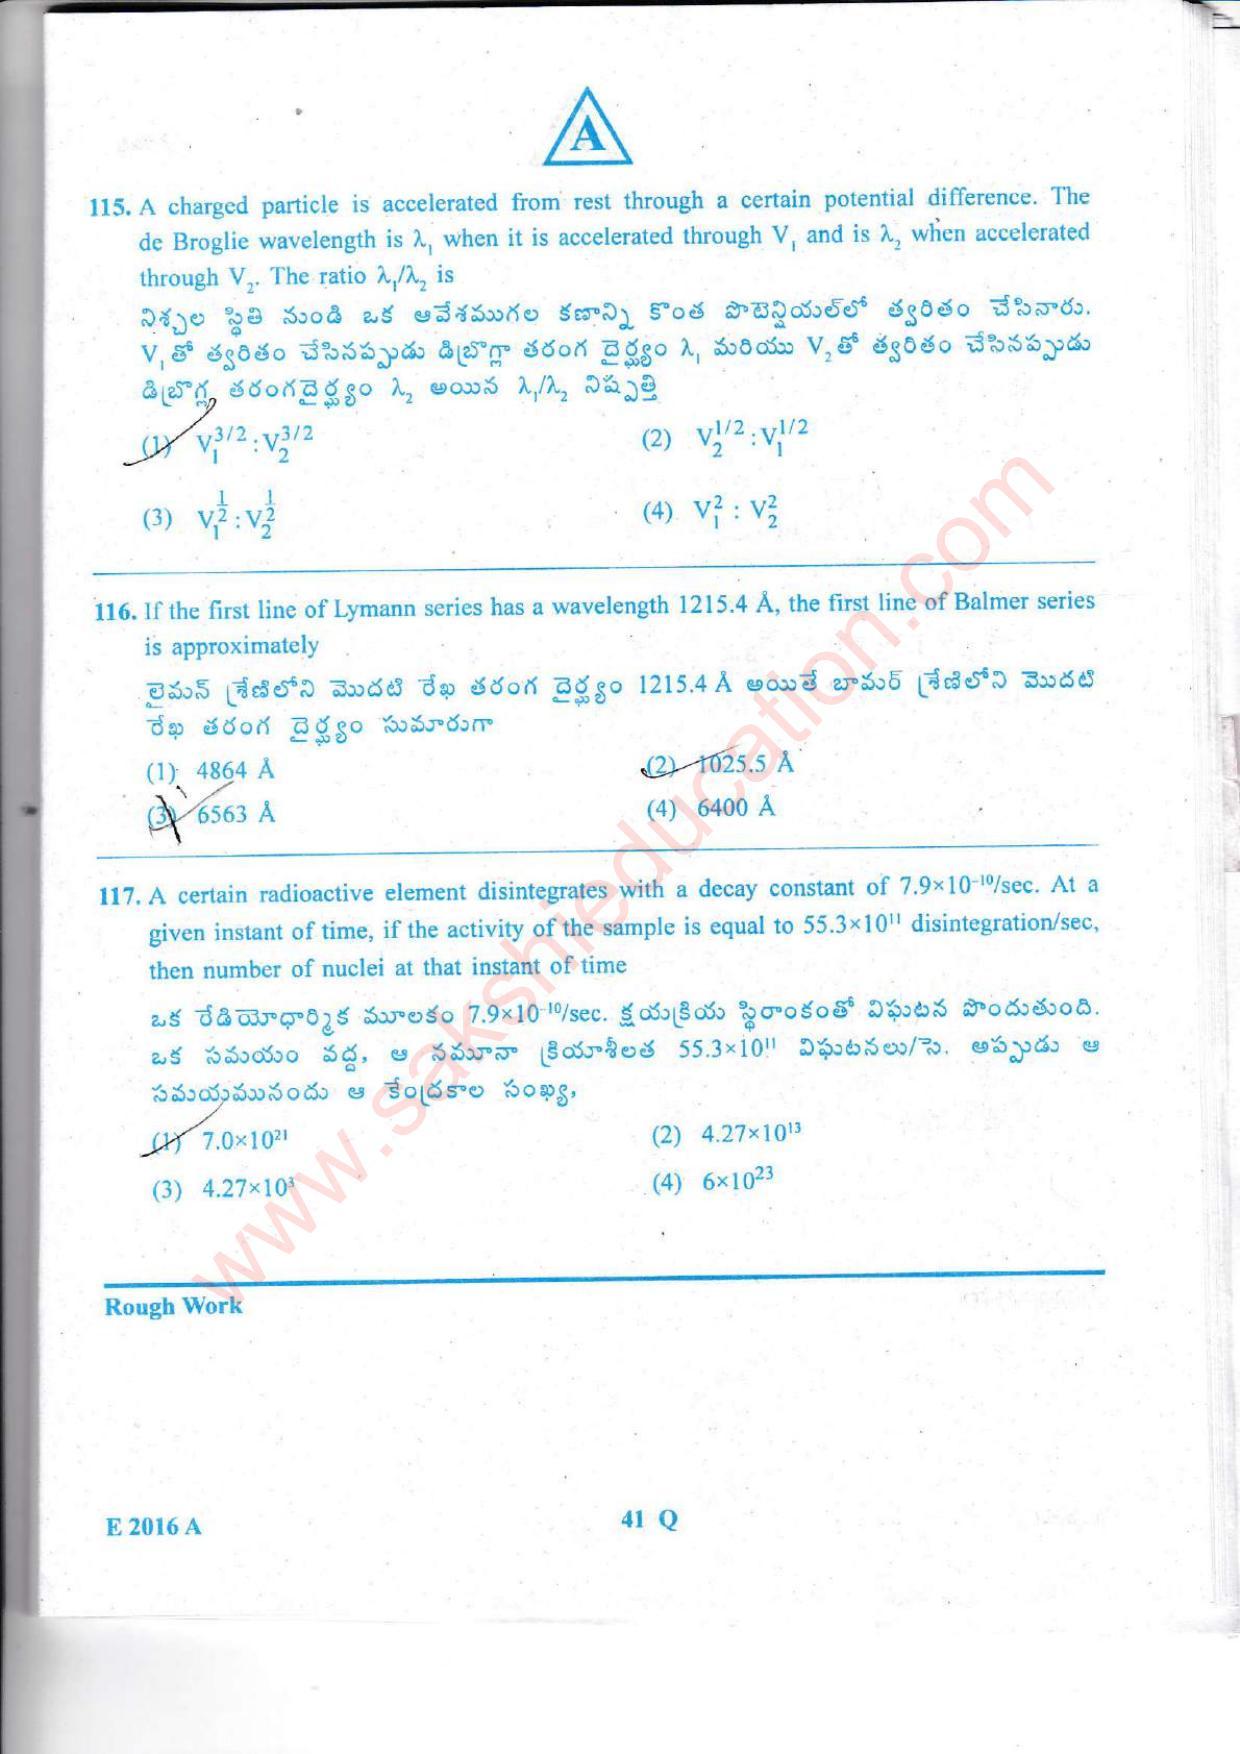 A
115. A charged particle is accelerated from rest through a certain potential difference. The
de Broglie wavelength is λ₁ when it is accelerated through V₁ and is λ₂ when accelerated
through V₂. The ratio λ₁/λ₂ is
నిశ్చల స్థితి నుండి ఒక ఆవేశముగల కణాన్ని కొంత పొటెన్షియల్‌లో త్వరితం చేసినారు.
V₁తో త్వరితం చేసినప్పుడు డిబ్రొగ్లా తరంగ దైర్ఘ్యం λ₁ మరియు V₂తో త్వరితం చేసినప్పుడు
డిబ్రొగ్లి తరంగదైర్ఘ్యం λ₂ అయిన λ₁/λ₂ నిష్పత్తి
(1) V₁^3/2 : V₂^3/2 (2) V₂^1/2 : V₁^1/2
(3) V₁^1/2 : V₂^1/2 (4) V₁² : V₂²
116. If the first line of Lymann series has a wavelength 1215.4 Å, the first line of Balmer series
is approximately
లైమన్ శ్రేణిలోని మొదటి రేఖ తరంగ దైర్ఘ్యం 1215.4 Å అయితే బామర్ శ్రేణిలోని మొదటి
రేఖ తరంగ దైర్ఘ్యం సుమారుగా
(1) 4864 Å (2) 1025.5 Å
(3) 6563 Å (4) 6400 Å
117. A certain radioactive element disintegrates with a decay constant of 7.9×10⁻¹⁰/sec. At a
given instant of time, if the activity of the sample is equal to 55.3×10¹¹ disintegration/sec,
then number of nuclei at that instant of time
ఒక రేడియోధార్మిక మూలకం 7.9×10⁻¹⁰/sec. క్షయక్రియ స్థిరాంకంతో విఘటన పొందుతుంది.
ఒక సమయం వద్ద, ఆ నమూనా క్రియాశీలత 55.3×10¹¹ విఘటనలు/సె. అప్పుడు ఆ
సమయమునందు ఆ కేంద్రకాల సంఖ్య,
(1) 7.0×10²¹ (2) 4.27×10¹³
(3) 4.27×10³ (4) 6×10²³
Rough Work
E 2016 A 41 Q
www.sakshieducation.com